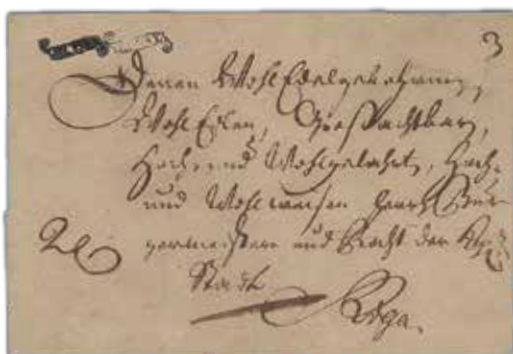 3
Denen WohlEdelgebohrnen,
WohlEdlen, GroßAchtbarn,
Hoch- und Wohlgelahrt, Hoch-
und Wohlweisen Herrn Bür-
germeistern und Raht der
Stadt
Riga.